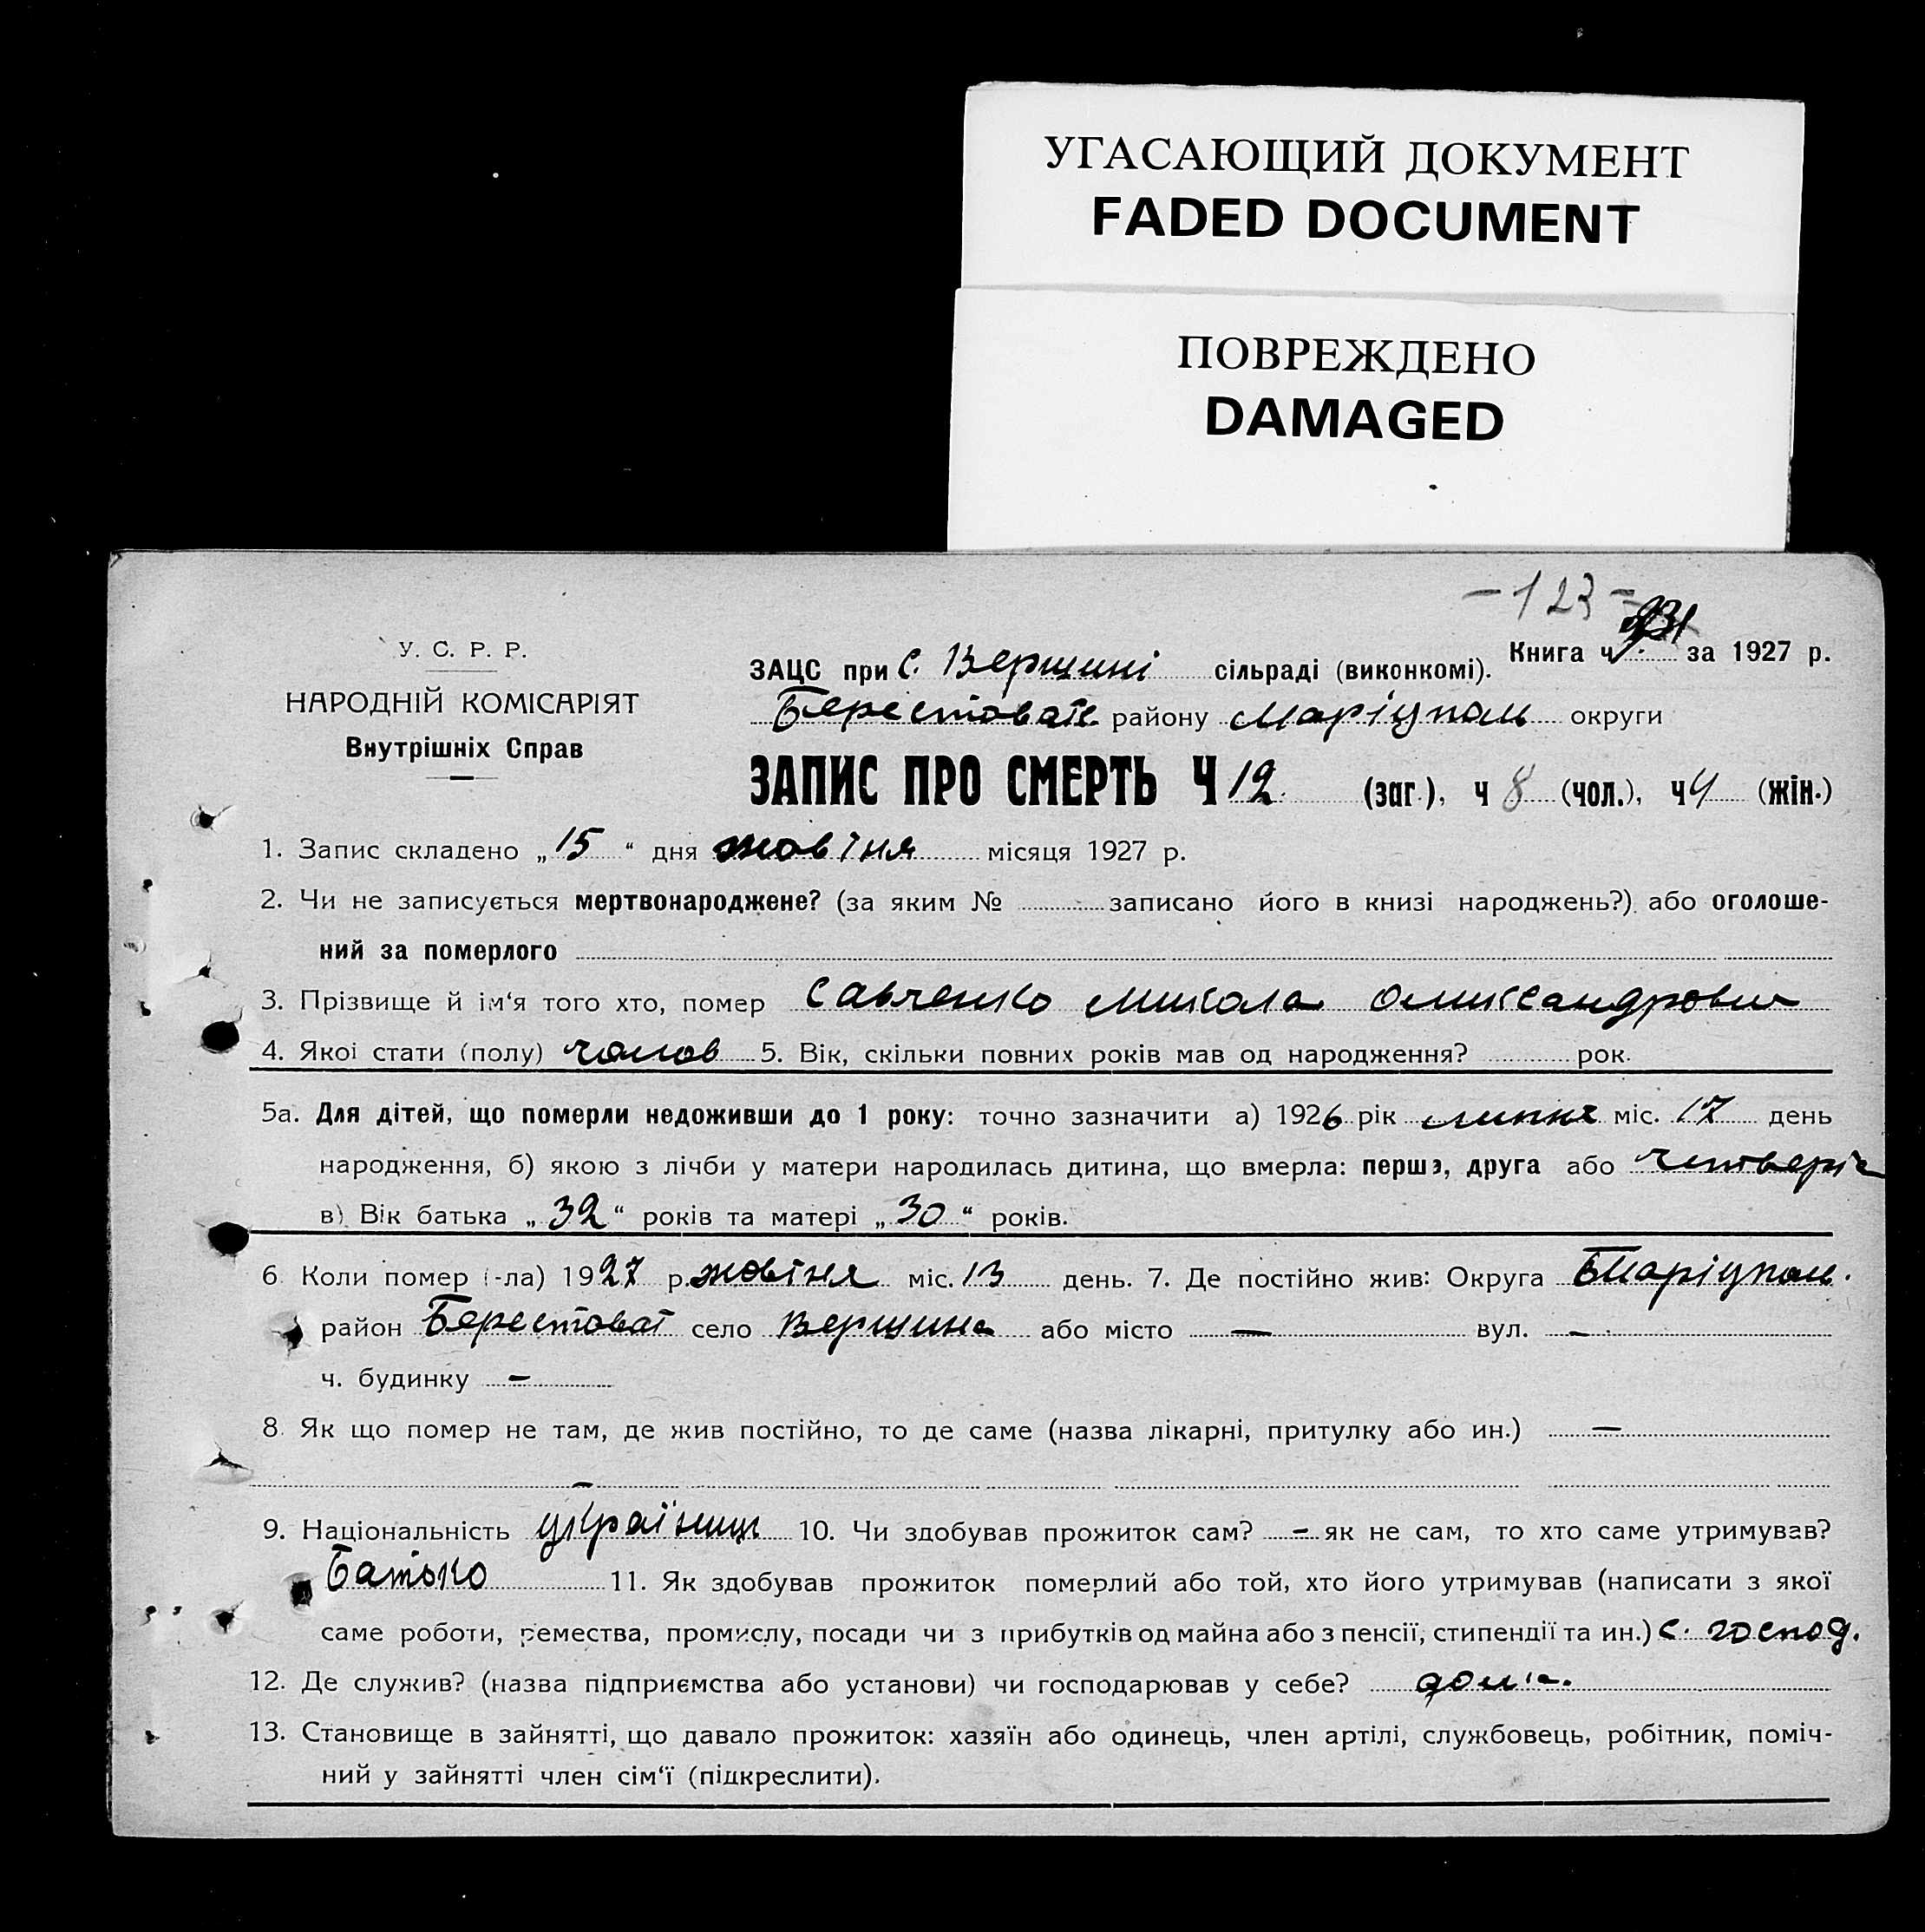 УГАСАЮЩИЙ ДОКУМЕНТ
FADED DOCUMENT
ПОВРЕЖДЕНО
DAMAGED
-123-
У. С. Р. Р.
НАРОДНІЙ КОМІСАРІЯТ
Внутрішніх Справ
Книга ч. за 1927 р.
ЗАЦС при с. Вершині сільраді (виконкомі).
Берестовате району Маріуполь округи
ЗАПИС ПРО СМЕРТЬ Ч 12 (заг.), ч 8 (чол.), ч 4 (жін.)
1. Запис складено „15“ дня жовтня місяця 1927 р.
2. Чи не записується мертвонароджене? (за яким № записано його в книзі народжень?) або оголоше-
ний за померлого
3. Прізвище й ім‘я того хто, помер Савченко Микола Олександрович
4. Якої стати (полу) чолов 5. Вік, скільки повних років мав од народження? рок.
5а. Для дітей, що померли недоживши до 1 року: точно зазначити а) 1926 рік липня міс. 17 день
народження, б) якою з лічби у матери народилась дитина, що вмерла: перша, друга або четверта
в) Вік батька „32“ років та матері „30“ років.
6. Коли помер (-ла) 1927 р. жовтня міс. 13 день. 7. Де постійно жив: Округа Маріуполь.
район Берестоват село Вершина або місто — вул. —
ч. будинку —
8. Як що помер не там, де жив постійно, то де саме (назва лікарні, притулку або ин.) —
—
9. Національність українец 10. Чи здобував прожиток сам? – як не сам, то хто саме утримував?
Батько 11. Як здобував прожиток померлий або той, хто його утримував (написати з якої
саме роботи, ремества, промислу, посади чи з прибутків од майна або з пенсії, стипендії та ин.) с. господ.
12. Де служив? (назва підприємства або установи) чи господарював у себе? дома.
13. Становище в зайнятті, що давало прожиток: хазяїн або одинець, член артілі, службовець, робітник, поміч-
ний у зайнятті член сім‘ї (підкреслити).